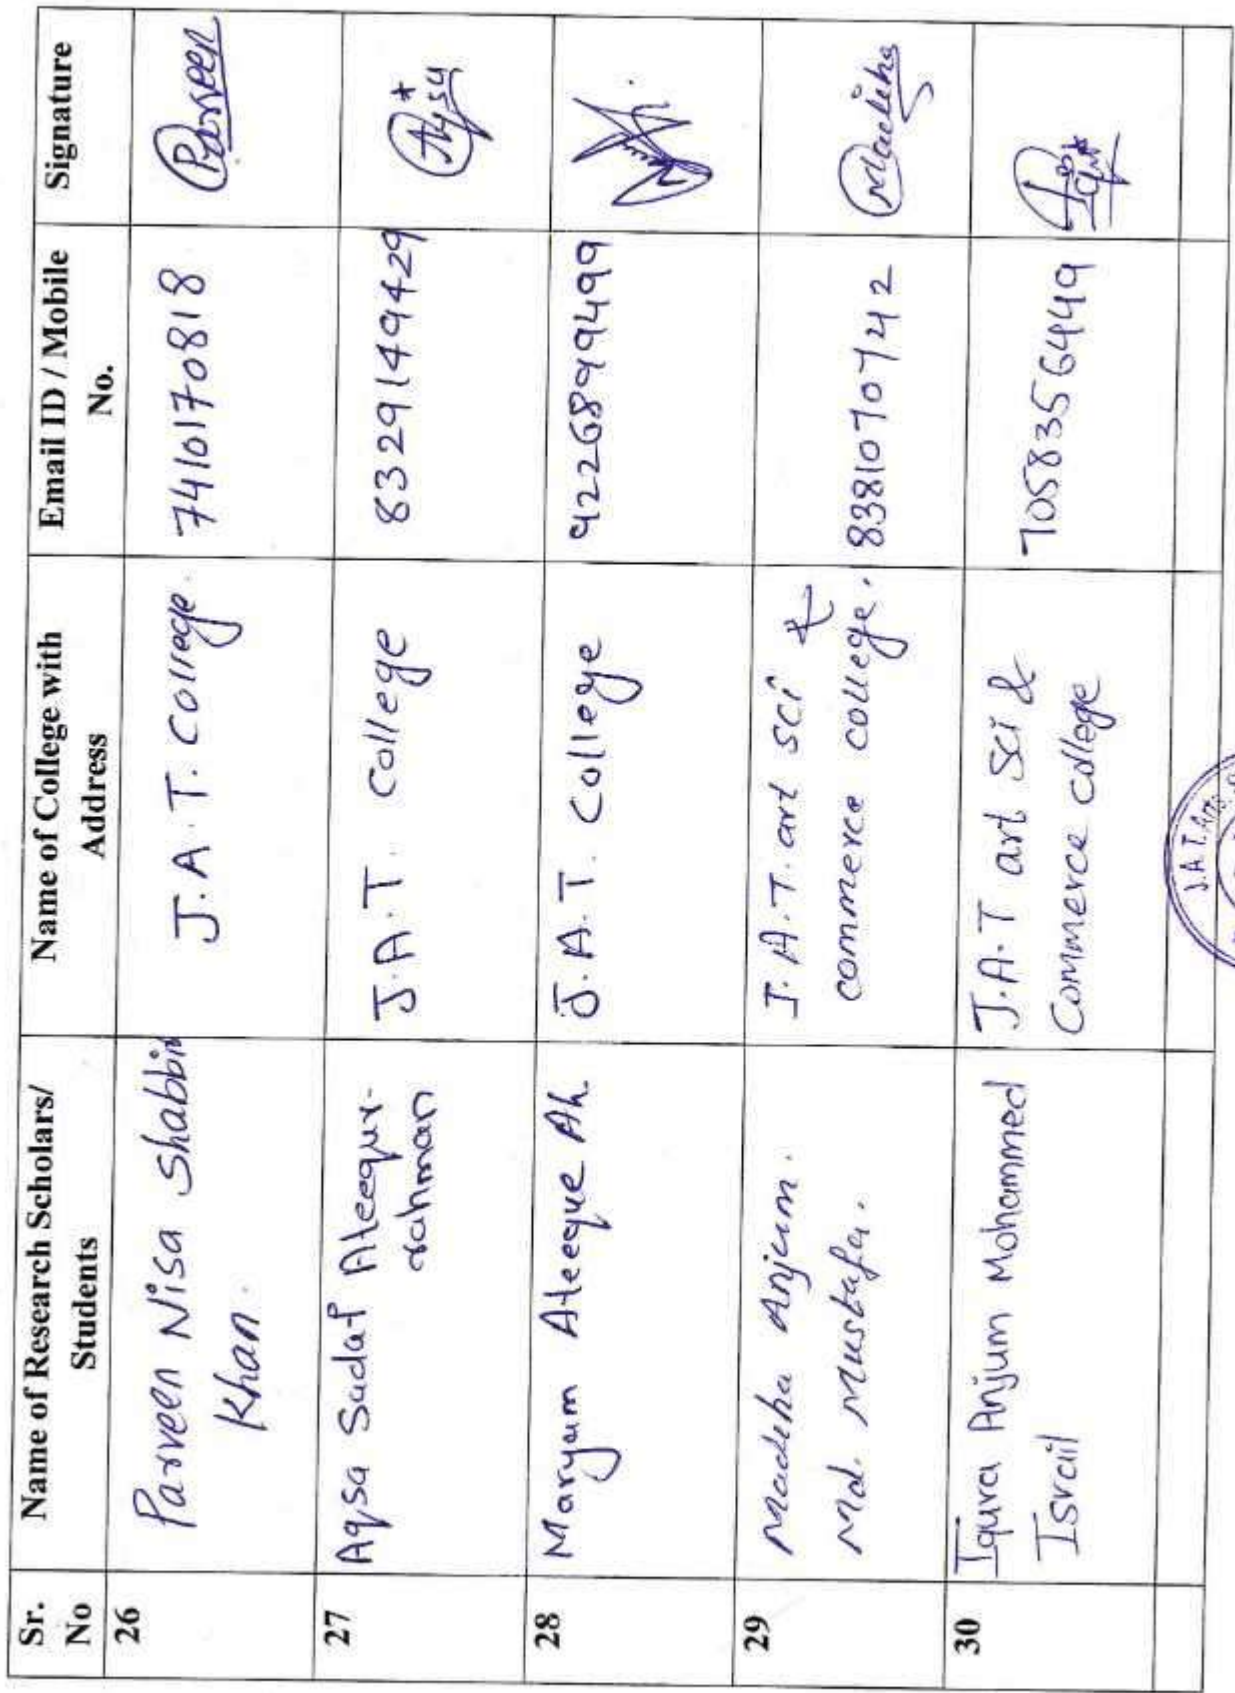 Sr. No
Name of Research Scholars/ Students
Name of College with Address
Email ID / Mobile No.
Signature
26
Parveen Nisa Shabbir
Khan.
J.A.T. College.
7410170818
Parveen
27
Aqsa Sadaf Ateequr-
rahman
J.A.T. College
8329149429
28
Maryam Ateeque Ah.
J.A.T. College
9226899499
29
Madeha Anjum.
Md. Mustafa.
J.A.T. art sci &
commerce college.
8381070742
Madeha
30
Iqura Anjum Mohammed
Israil
J.A.T art sci &
Commerce college
7058356449
J.A.T. Arts